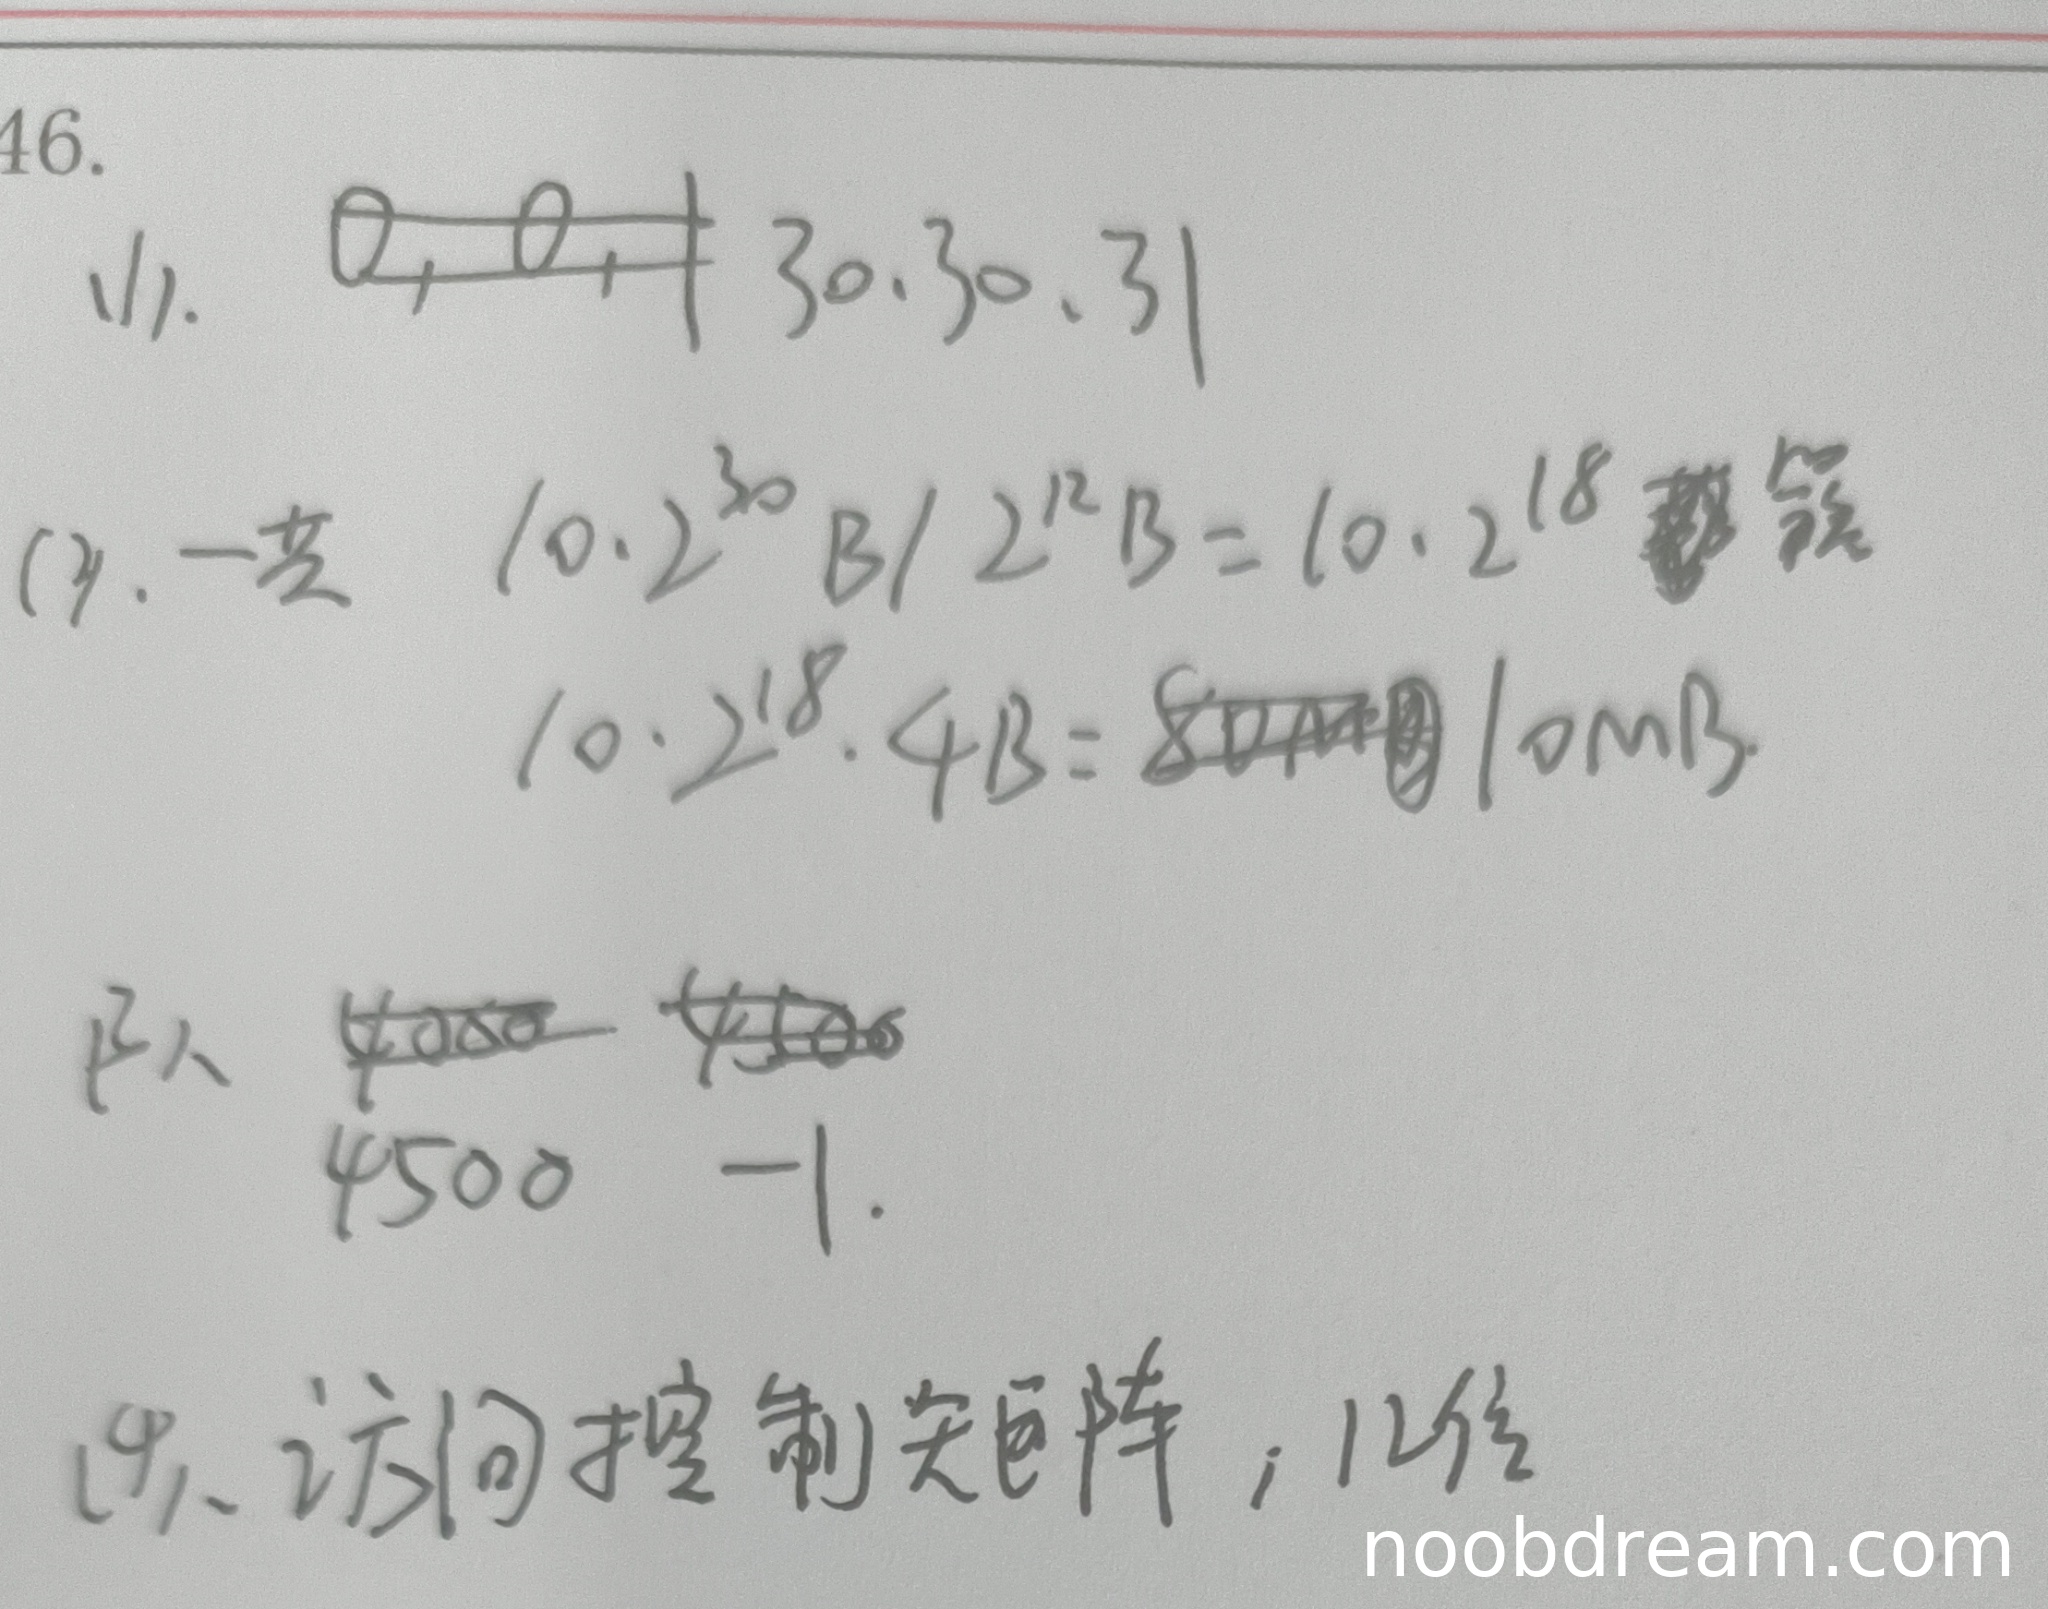 46.
(1). 30、30、31
(2). 一共 10·2^30 B / 2^12 B = 10·2^18 簇
10·2^18·4B = 10MB.
(3)、
4500 -1.
(4)、访问控制矩阵，12位
noobdream.com